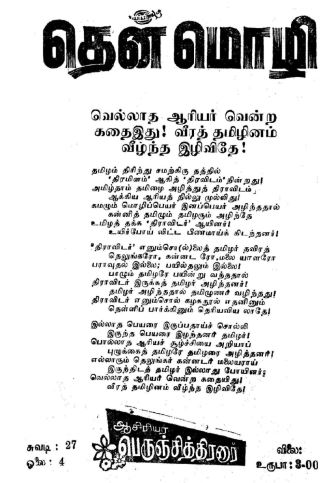 தென்மொழி
வெல்லாத ஆரியர் வென்ற
கதைஇது! வீரத் தமிழினம்
வீழ்ந்த இழிவிதே!
தமிழம் திரிந்து சமற்கிரு தத்தில்
'திரமினம்' ஆகித் 'திரவிடம்' நின்றது!
அமிழ்தாம் தமிழை அழித்துத் திராவிடம்
ஆக்கிய ஆரியத் தில்லு முல்லிது!
கமழும் மொழிப்பெயர் இனப்பெயர் அழிந்ததால்
கன்னித் தமிழும் தமிழரும் அழிந்தே
உமிழத் தக்க 'திராவிடர்' ஆயினர்!
உயிர்போய் விட்ட பிணமாய்க் கிடந்தனர்!
'திராவிடர்' எனும்சொ(ல்)லைத் தமிழர் தவிரத்
தெலுங்கரோ, கன்னட ரோ,மலை யாளரோ
பரவுதல் இல்லை; பயில்தலும் இல்லை!
பாழும் தமிழரே பயின்று வந்ததால்
திராவிடர் இருக்கத் தமிழர் அழிந்தனர்!
தமிழர் அழிந்ததால் தமிழுணர் வழிந்தது!
திராவிடர் எனும்சொல் கழகநூல் எதனினும்
தெள்ளிப் பார்க்கினும் தெரியவிய லாதே!
இல்லாத பெயரை இருப்பதாய்ச் சொல்லி
இருந்த பெயரை இழந்தனர் தமிழர்!
பொல்லாத ஆரியர் சூழ்ச்சியை அறியாப்
புழுக்கைத் தமிழரே தமிழரை அழித்தனர்!
எல்லாரும் தெலுங்கர் கன்னடர் மலையாராய்
இருந்திடத் தமிழர் இல்லாது போயினர்;
வெல்லாத ஆரியர் வென்ற கதையிது!
வீரத் தமிழினம் வீழ்ந்த இழிவிதே!
ஆசிரியர்
பெருஞ்சித்திரனார்
சுவடி: 27
ஓலை: 4
விலை:
உருபா: 3-00